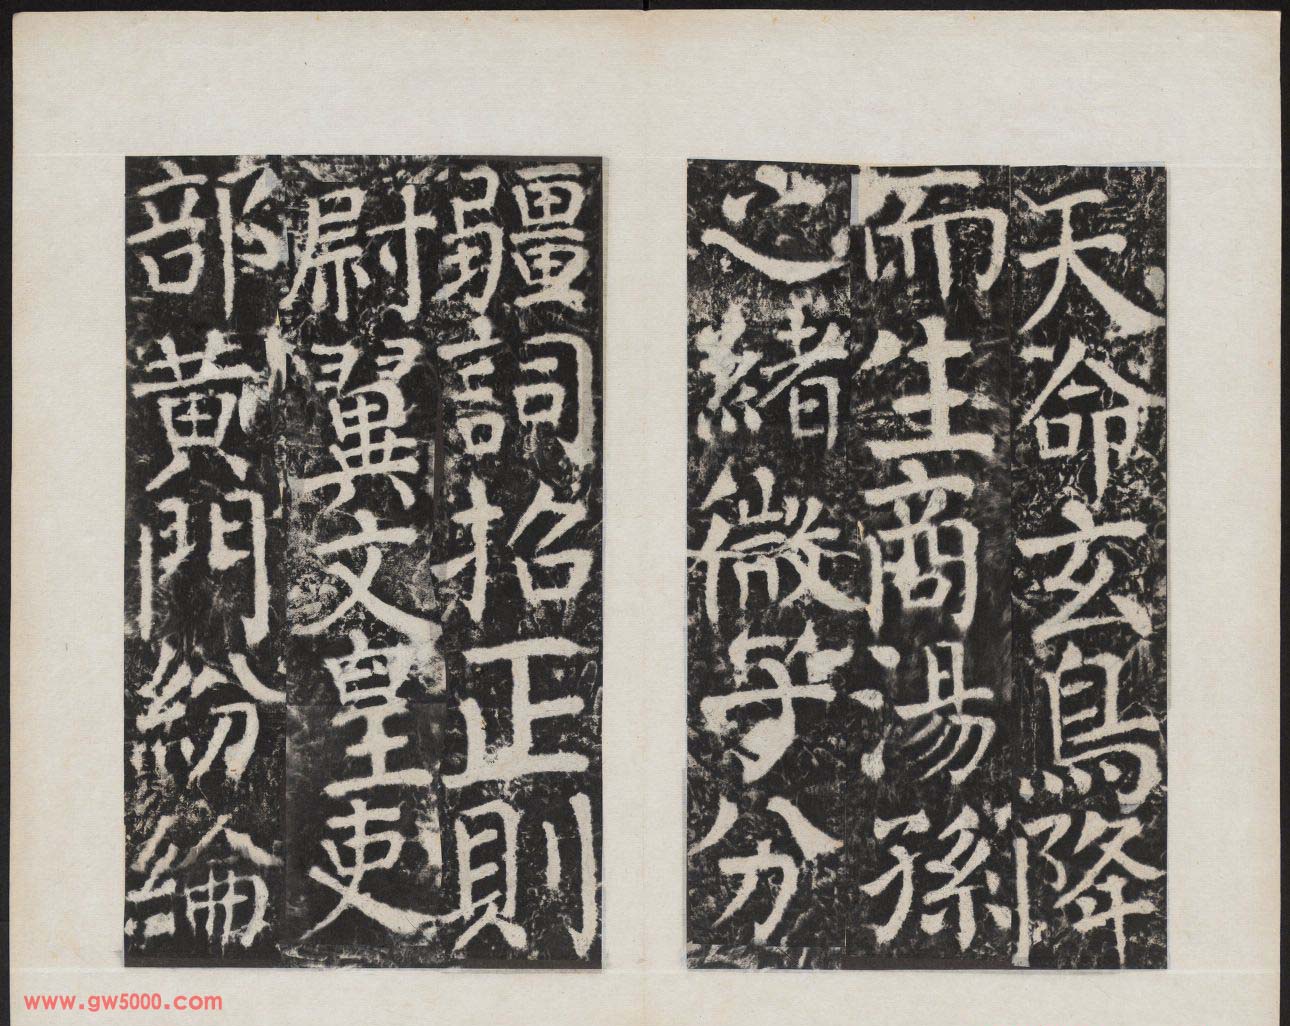 天命玄鳥降
而生商湯孫
之緒微子分
疆詞招正則
尉翼文皇吏
部黄門紛綸
www.gw5000.com